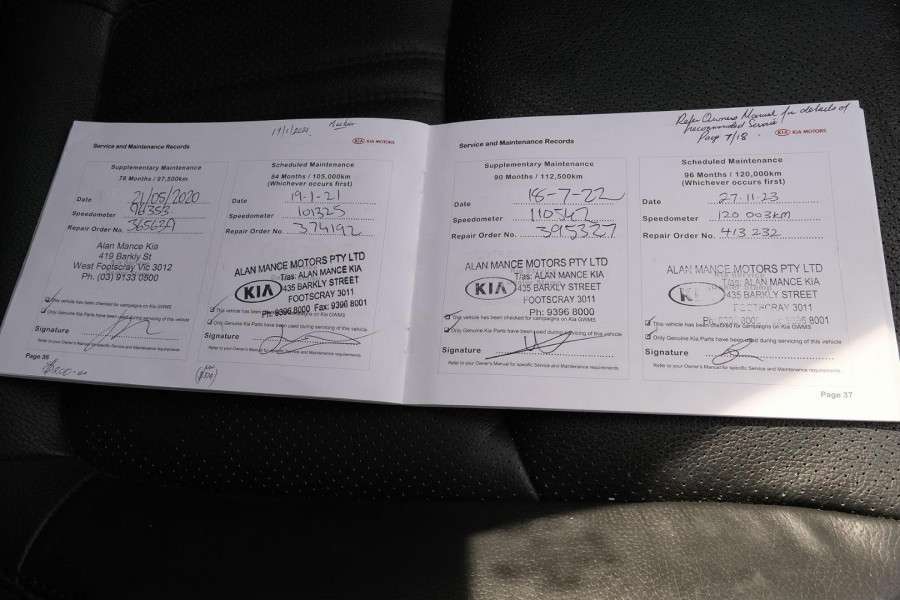 Service and Maintenance Records
19/1/2021
KIA KIA MOTORS
Supplementary Maintenance
78 Months / 97,500km
Date 21/05/2020
Speedometer
Repair Order No. 365639
Alan Mance Kia
419 Barkly St
West Footscray Vic 3012
Ph. (03) 9133 0500
This vehicle has been checked for campaigns on Kia GWMS
Only Genuine Kia Parts have been used during servicing of this vehicle
Signature
Refer to your Owner's Manual for specific Service and Maintenance requirements.
Page 36
Scheduled Maintenance
84 Months / 105,000km
(Whichever occurs first)
Date 19-1-21
Speedometer 101325
Repair Order No. 374192
ALAN MANCE MOTORS PTY LTD
T/as: ALAN MANCE KIA
KIA 435 BARKLY STREET
FOOTSCRAY 3011
Ph: 9396 8000 Fax: 9396 8001
This vehicle has been checked for campaigns on Kia GWMS
Only Genuine Kia Parts have been used during servicing of this vehicle
Signature
Refer to your Owner's Manual for specific Service and Maintenance requirements.
Service and Maintenance Records
Refer Owners Manual for details of
recommended Service
Page 7/18.
KIA KIA MOTORS
Supplementary Maintenance
90 Months / 112,500km
Date 18-7-22
Speedometer 110542
Repair Order No. 395327
ALAN MANCE MOTORS PTY LTD
T/as: ALAN MANCE KIA
KIA 435 BARKLY STREET
FOOTSCRAY 3011
Ph: 9396 8000
This vehicle has been checked for campaigns on Kia GWMS
Only Genuine Kia Parts have been used during servicing of this vehicle
Signature
Refer to your Owner's Manual for specific Service and Maintenance requirements
Scheduled Maintenance
96 Months / 120,000km
(Whichever occurs first)
Date 27.11.23
Speedometer 120 003km
Repair Order No. 413 232
ALAN MANCE MOTORS PTY LTD
T/as: ALAN MANCE KIA
KIA 435 BARKLY STREET
FOOTSCRAY 3011
8001
This vehicle has been checked for campaigns on Kia GWMS
Only Genuine Kia Parts have been used during servicing of this vehicle
Signature
Refer to your Owner's Manual for specific Service and Maintenance requirements.
Page 37